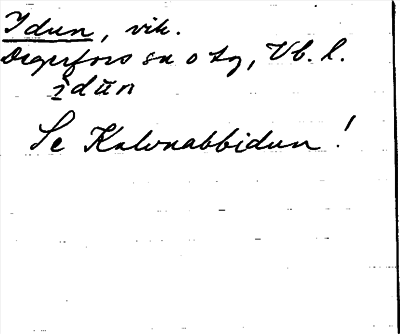 Idun, vik.
Degerfors sn o tg, Vb. l.
ìdūn
Se Kalvnabbidun!